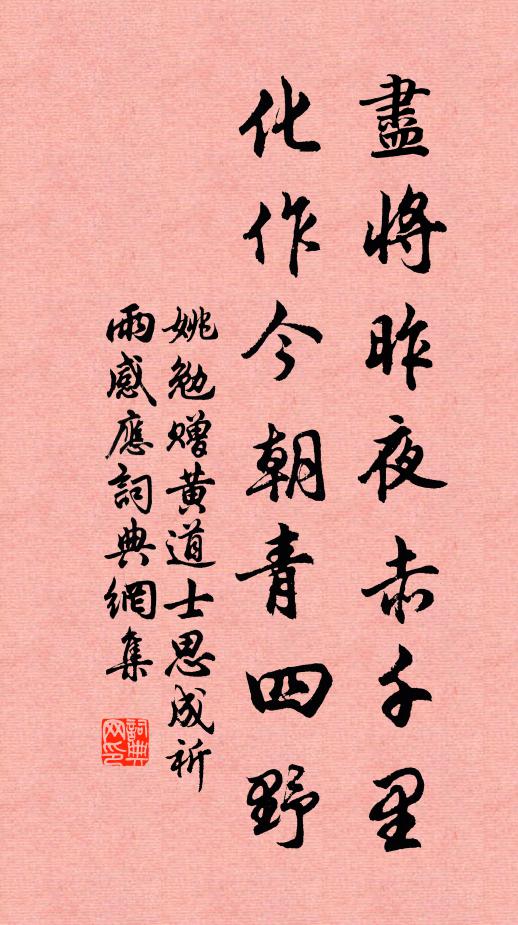 盡將昨夜赤千里
化作今朝青四野
姚勉贈黃道士思成祈
雨感應詞典網集
詞典
网印